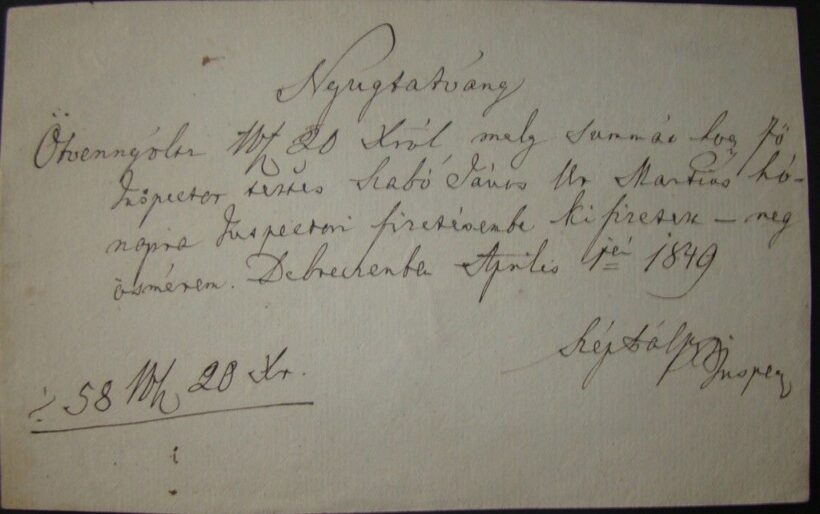 Nyugtatvány
Ötvennyoltz Vf 20 Xról mely summát hog Fő
Inspector tettes Szabó János Ur Martius hó-
napra Inspectori fizetésembe ki fizetett – meg
ösmérem. Debreczenben Április 1ső 1849
58 Vf 20 Xr.
Inspec